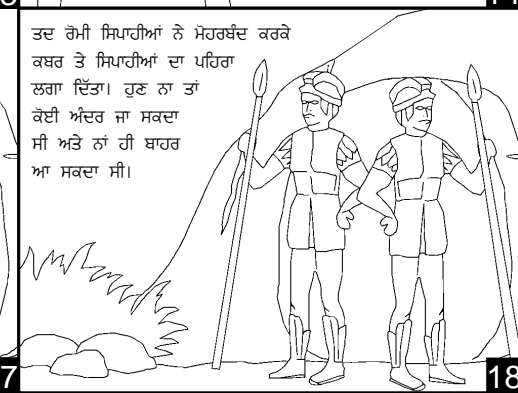 ਤਦ ਰੋਮੀ ਸਿਪਾਹੀਆਂ ਨੇ ਮੋਹਰਬੰਦ ਕਰਕੇ
ਕਬਰ ਤੇ ਸਿਪਾਹੀਆਂ ਦਾ ਪਹਿਰਾ
ਲਗਾ ਦਿੱਤਾ। ਹੁਣ ਨਾ ਤਾਂ
ਕੋਈ ਅੰਦਰ ਜਾ ਸਕਦਾ
ਸੀ ਅਤੇ ਨਾਂ ਹੀ ਬਾਹਰ
ਆ ਸਕਦਾ ਸੀ।
7
18